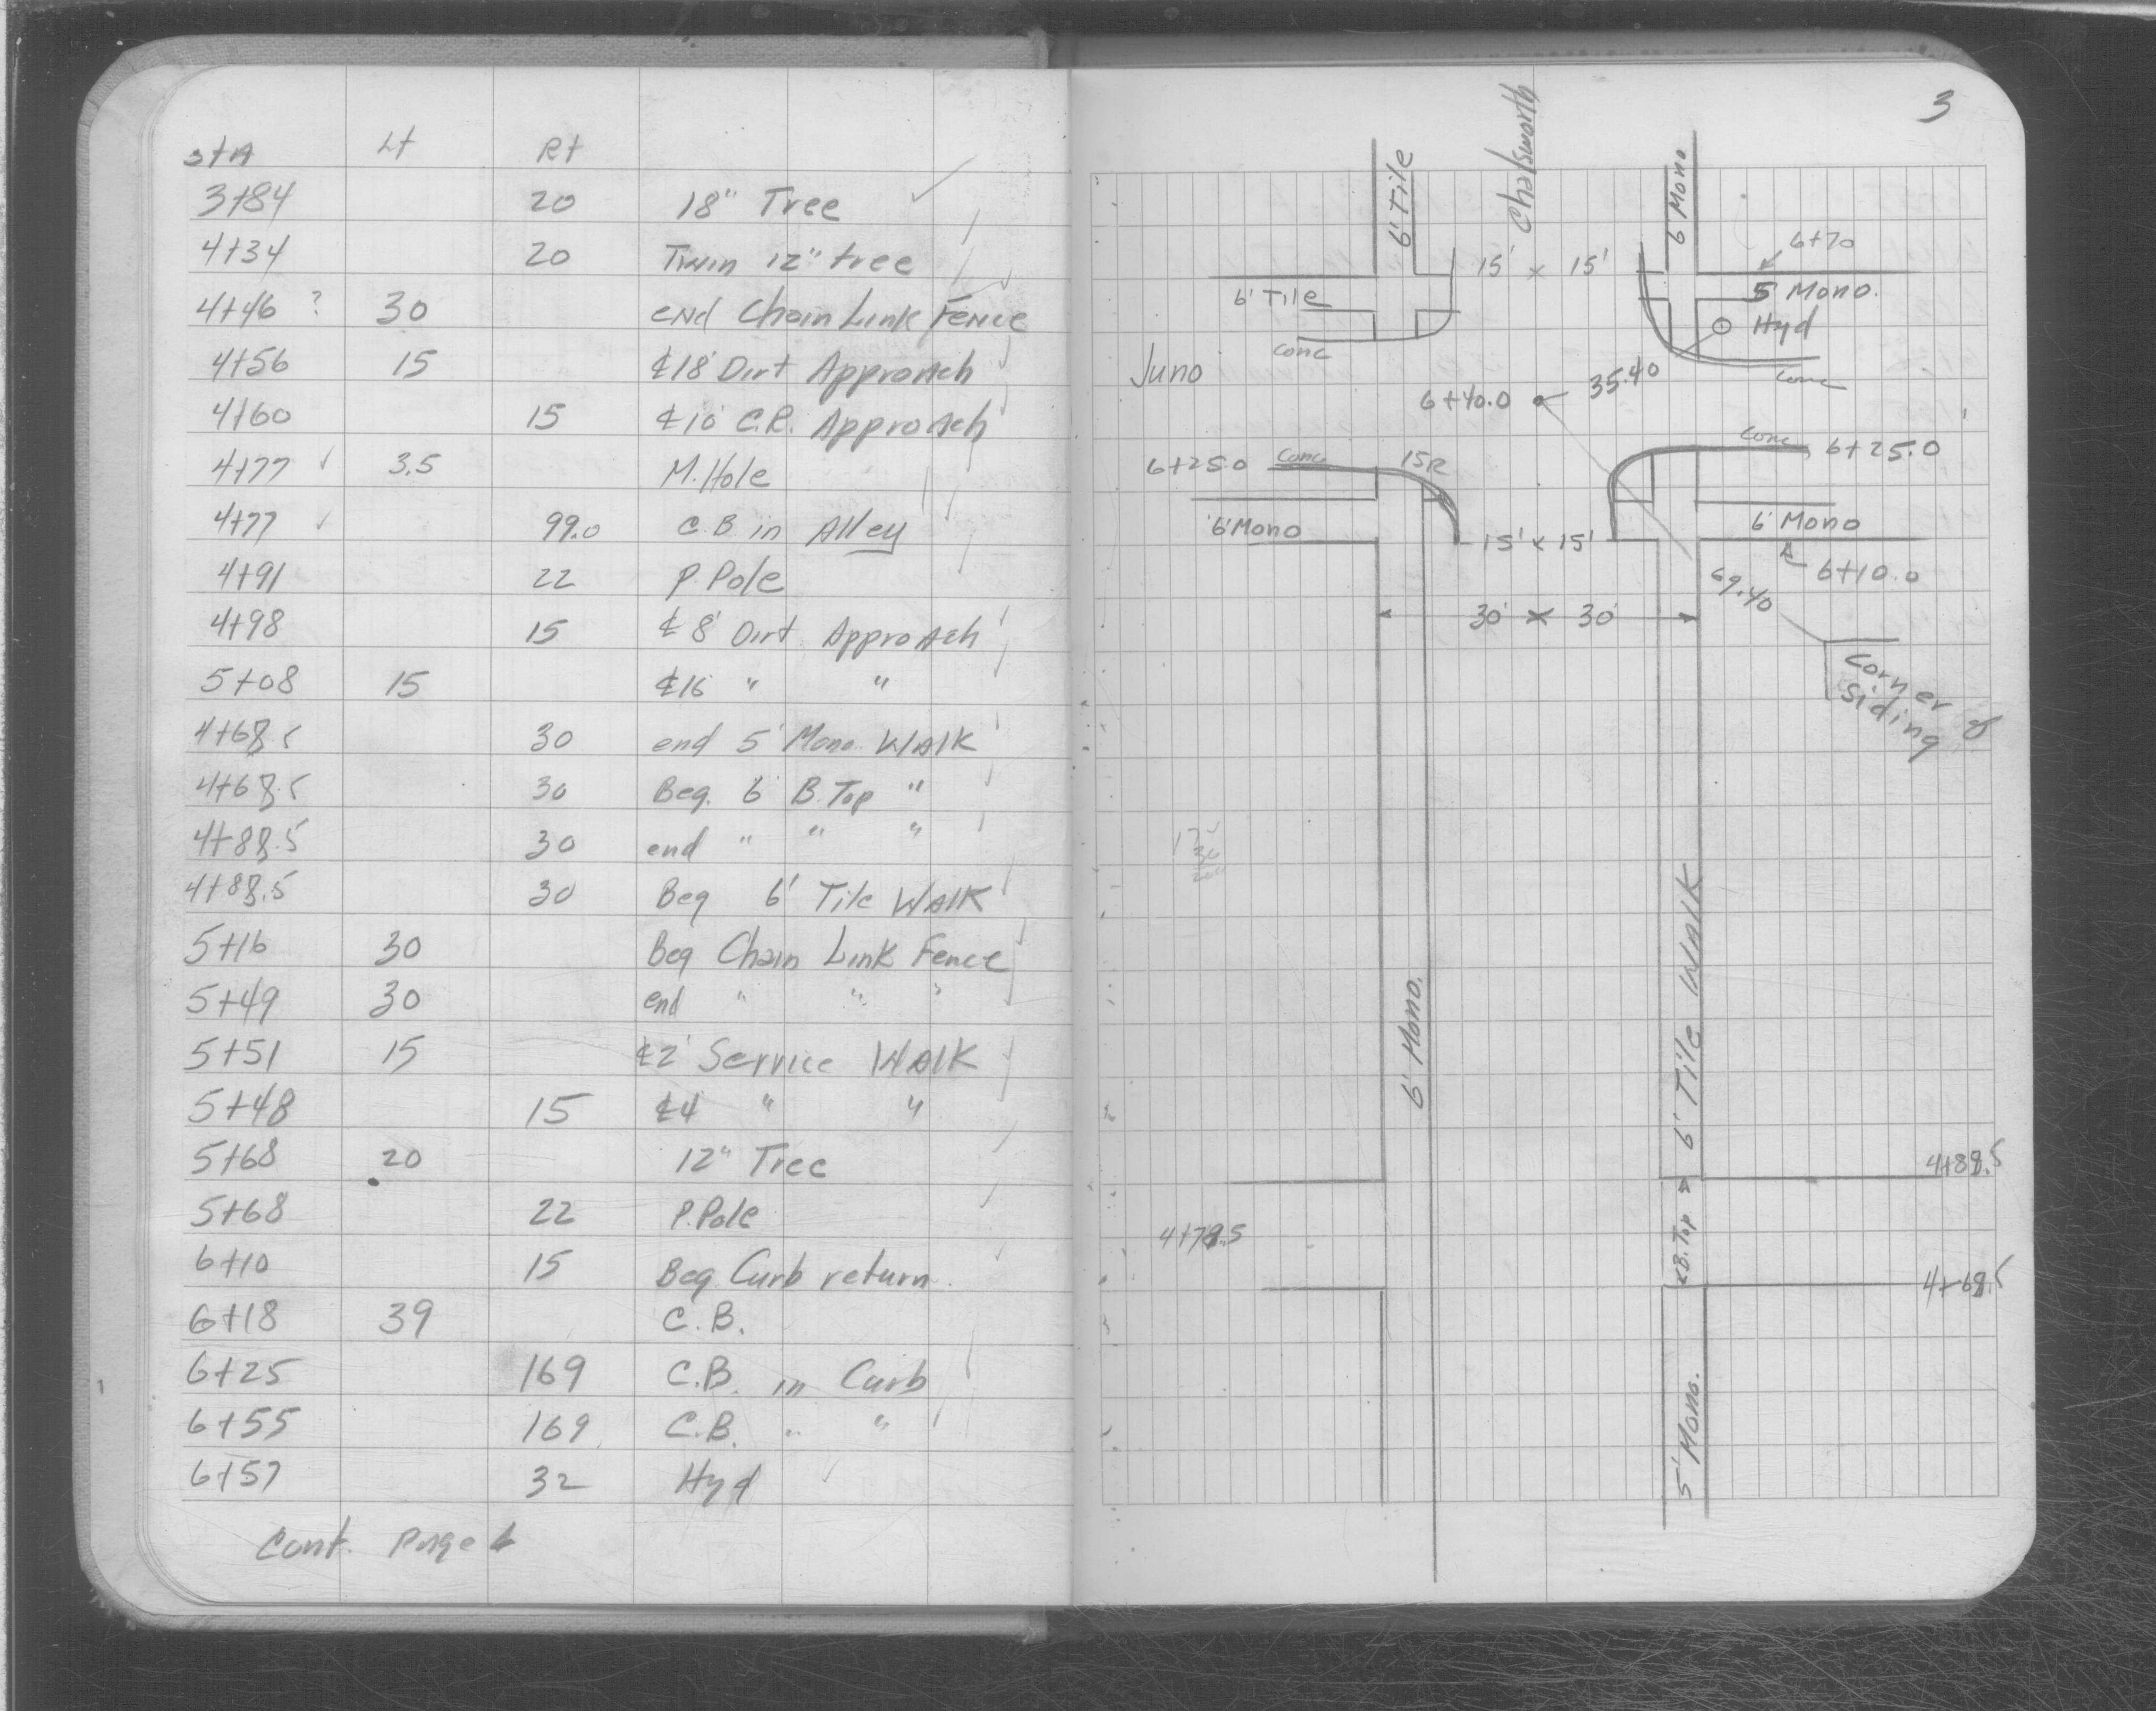 StA Lt Rt
3+84 20 18" Tree ✓
4+34 20 Twin 12" tree
4+46 ? 30 end Chain Link Fence
4+56 15 ℄18' Dirt Approach
4+60 15 ℄10' C.R. Approach
4+77 ✓ 3.5 M.Hole
4+77 ✓ 99.0 C.B in Alley
4+91 22 P.Pole
4+98 15 ℄8' Dirt Approach
5+08 15 ℄16' " "
4+68.5 30 end 5' Mono. WAlK
4+68.5 30 Beg. 6' B.Top "
4+88.5 30 end " " "
4+88.5 30 Beg 6' Tile WAlK
5+16 30 Beg Chain Link Fence
5+49 30 end " " "
5+51 15 ℄2' Service WAlK
5+48 15 ℄4' " "
5+68 20 12" Tree
5+68 22 P.Pole
6+10 15 Beg Curb return
6+18 39 C.B.
6+25 169 C.B. in Curb
6+55 169 C.B. " "
6+57 32 Hyd ✓
Cont. Page
3
6' Tile
Chatsworth
6' Mono
15' x 15'
6+70
6' Tile
5' Mono.
Hyd
Conc
Conc
Juno
6+40.0
35.40
6+25.0 Conc 15R
Conc 6+25.0
6' Mono
15' x 15'
6' Mono
6+10.0
69.40
30' x 30'
Corner of
Siding
6' Mono.
6' Tile WAlK
4+88.5
4+78.5
B.Top
4+68.5
5' Mono.